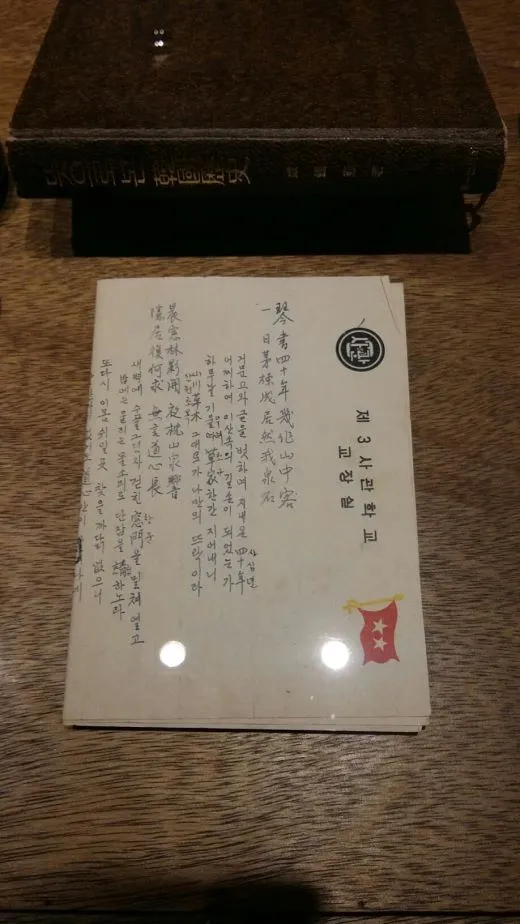 뜻으로본 韓國歷史
제3사관학교
교장실
琴書四十年 幾作山中客
一日茅棟成 居然我泉石
거문고와 글을 벗하여 지내온 四十年
사십년
어찌하여 이 산속의 길손이 되었는가
草家 한간 지어내니
山川草木 그대로가 나만의 뜨락이라
산천초목
晨窓林影開 夜枕山泉響
隱居復何求 無言道心長
새벽에 수풀 그림자 걷힌 窓門을 밀쳐 열고
창문
밤에는 들리는 물소리로 단잠을 請하노라
또다시 이몸 찾을 까닭 없으니